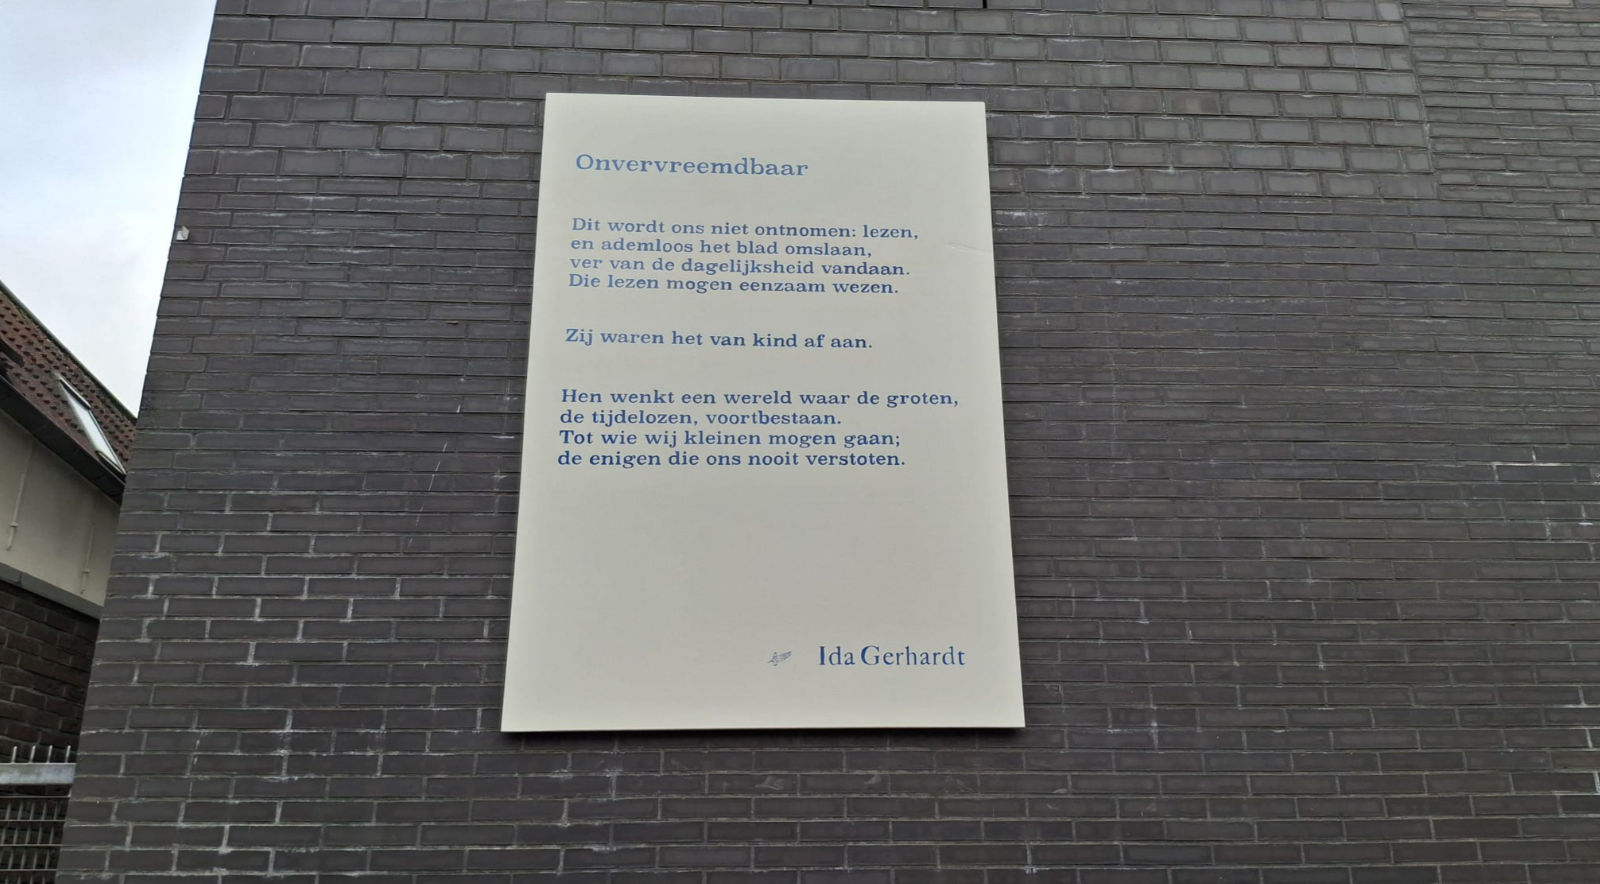 Onvervreemdbaar
Dit wordt ons niet ontnomen: lezen,
en ademloos het blad omslaan,
ver van de dagelijksheid vandaan.
Die lezen mogen eenzaam wezen.
Zij waren het van kind af aan.
Hen wenkt een wereld waar de groten,
de tijdelozen, voortbestaan.
Tot wie wij kleinen mogen gaan;
de enigen die ons nooit verstoten.
Ida Gerhardt